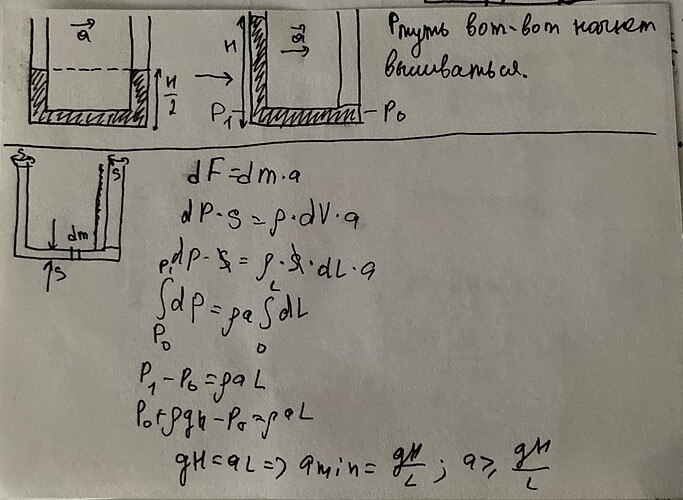 a⃗
H/2
H
a⃗
P₁
P₀
Ртуть вот-вот начнет
выливаться.
S
S
dm
S
dF = dm·a
dP·S = ρ·dV·a
dp·S = ρ·S·dL·a
∫_{P₀}^{P₁} dp = ρa ∫_{0}^{L} dL
P₁ - P₀ = ρaL
P₀ + ρgH - P₀ = ρaL
gH = aL => a min = gH/L ; a ≥ gH/L